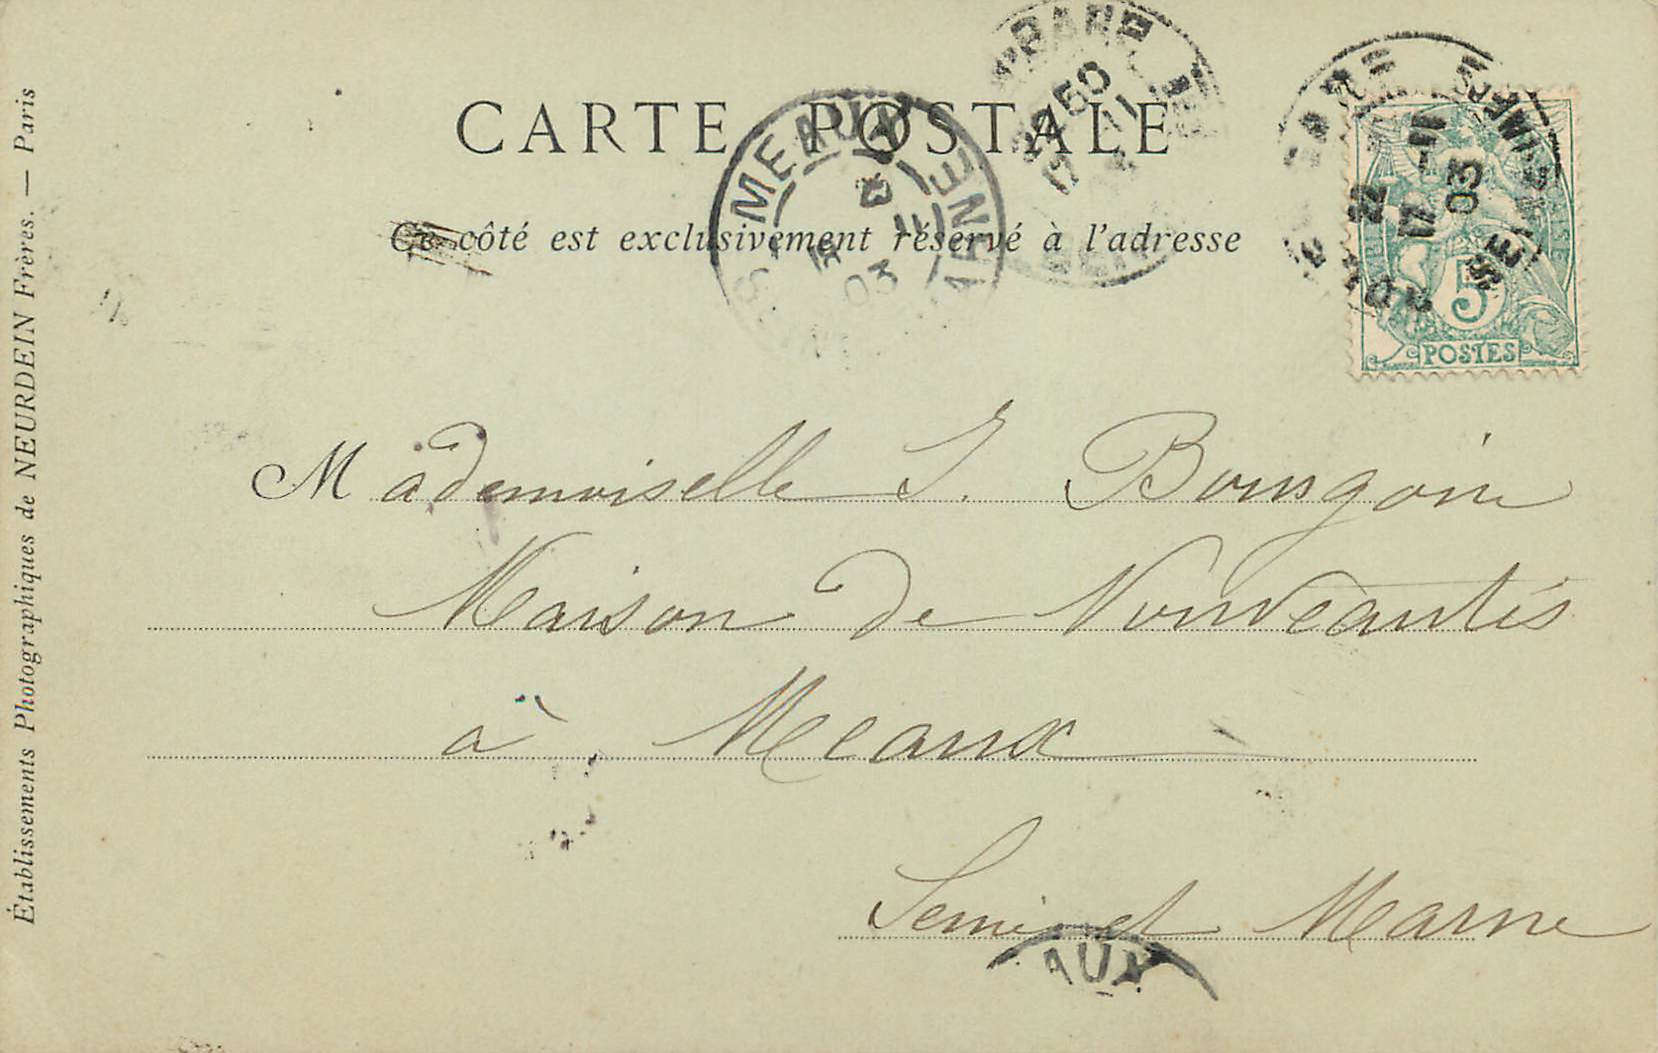 CARTE POSTALE
Ce côté est exclusivement réservé à l'adresse
Établissements Photographiques de NEURDEIN Frères. — Paris
MEAUX
MARNE
03
50
17
11
22
17 -11
03
SEINE
5
POSTES
Mademoiselle J. Bourgoin
Maison de Nouveautés
à Meaux
Seine et Marne
AUX